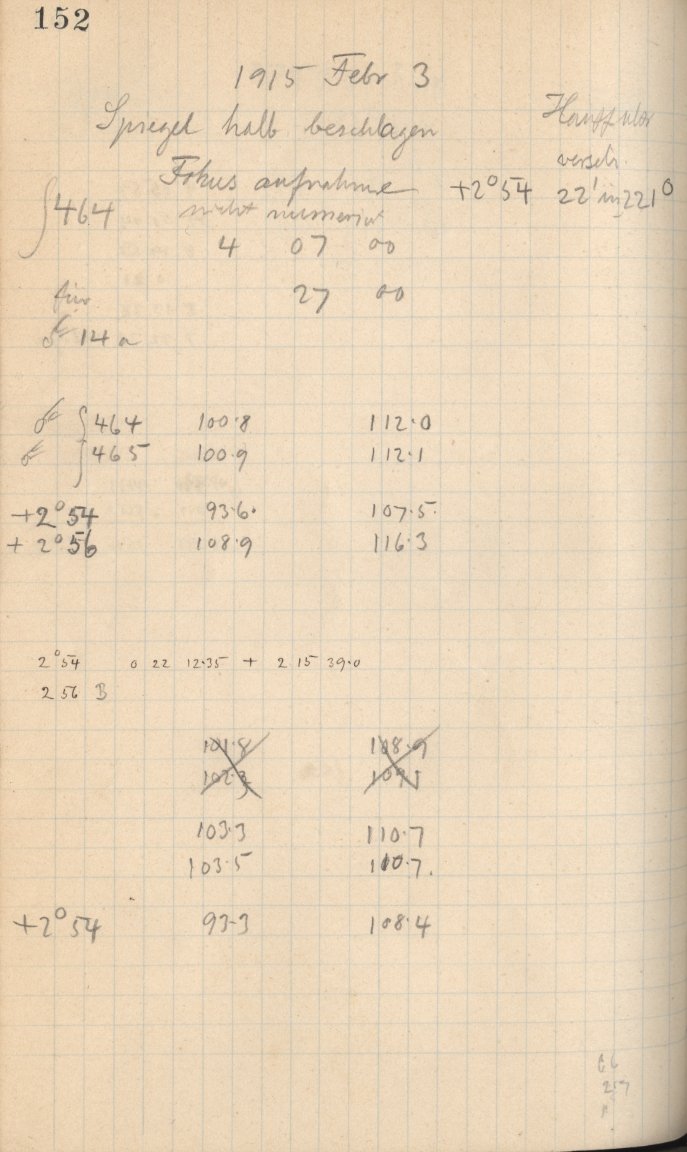 152
1915 Febr 3
Spiegel halb beschlagen
Fokus aufnahme +2°54 22' in 221°
464 nicht numeriert
4 07 00
für 27 00
14 a
464 100.8 112.0
465 100.9 112.1
+2°54 93.6. 107.5.
+2°56 108.9 116.3
2°54 0 22 12.35 + 2 15 39.0
2 56 B
101.8 108.9
103.3 110.7
103.5 110.7.
+2°54 93.3 108.4